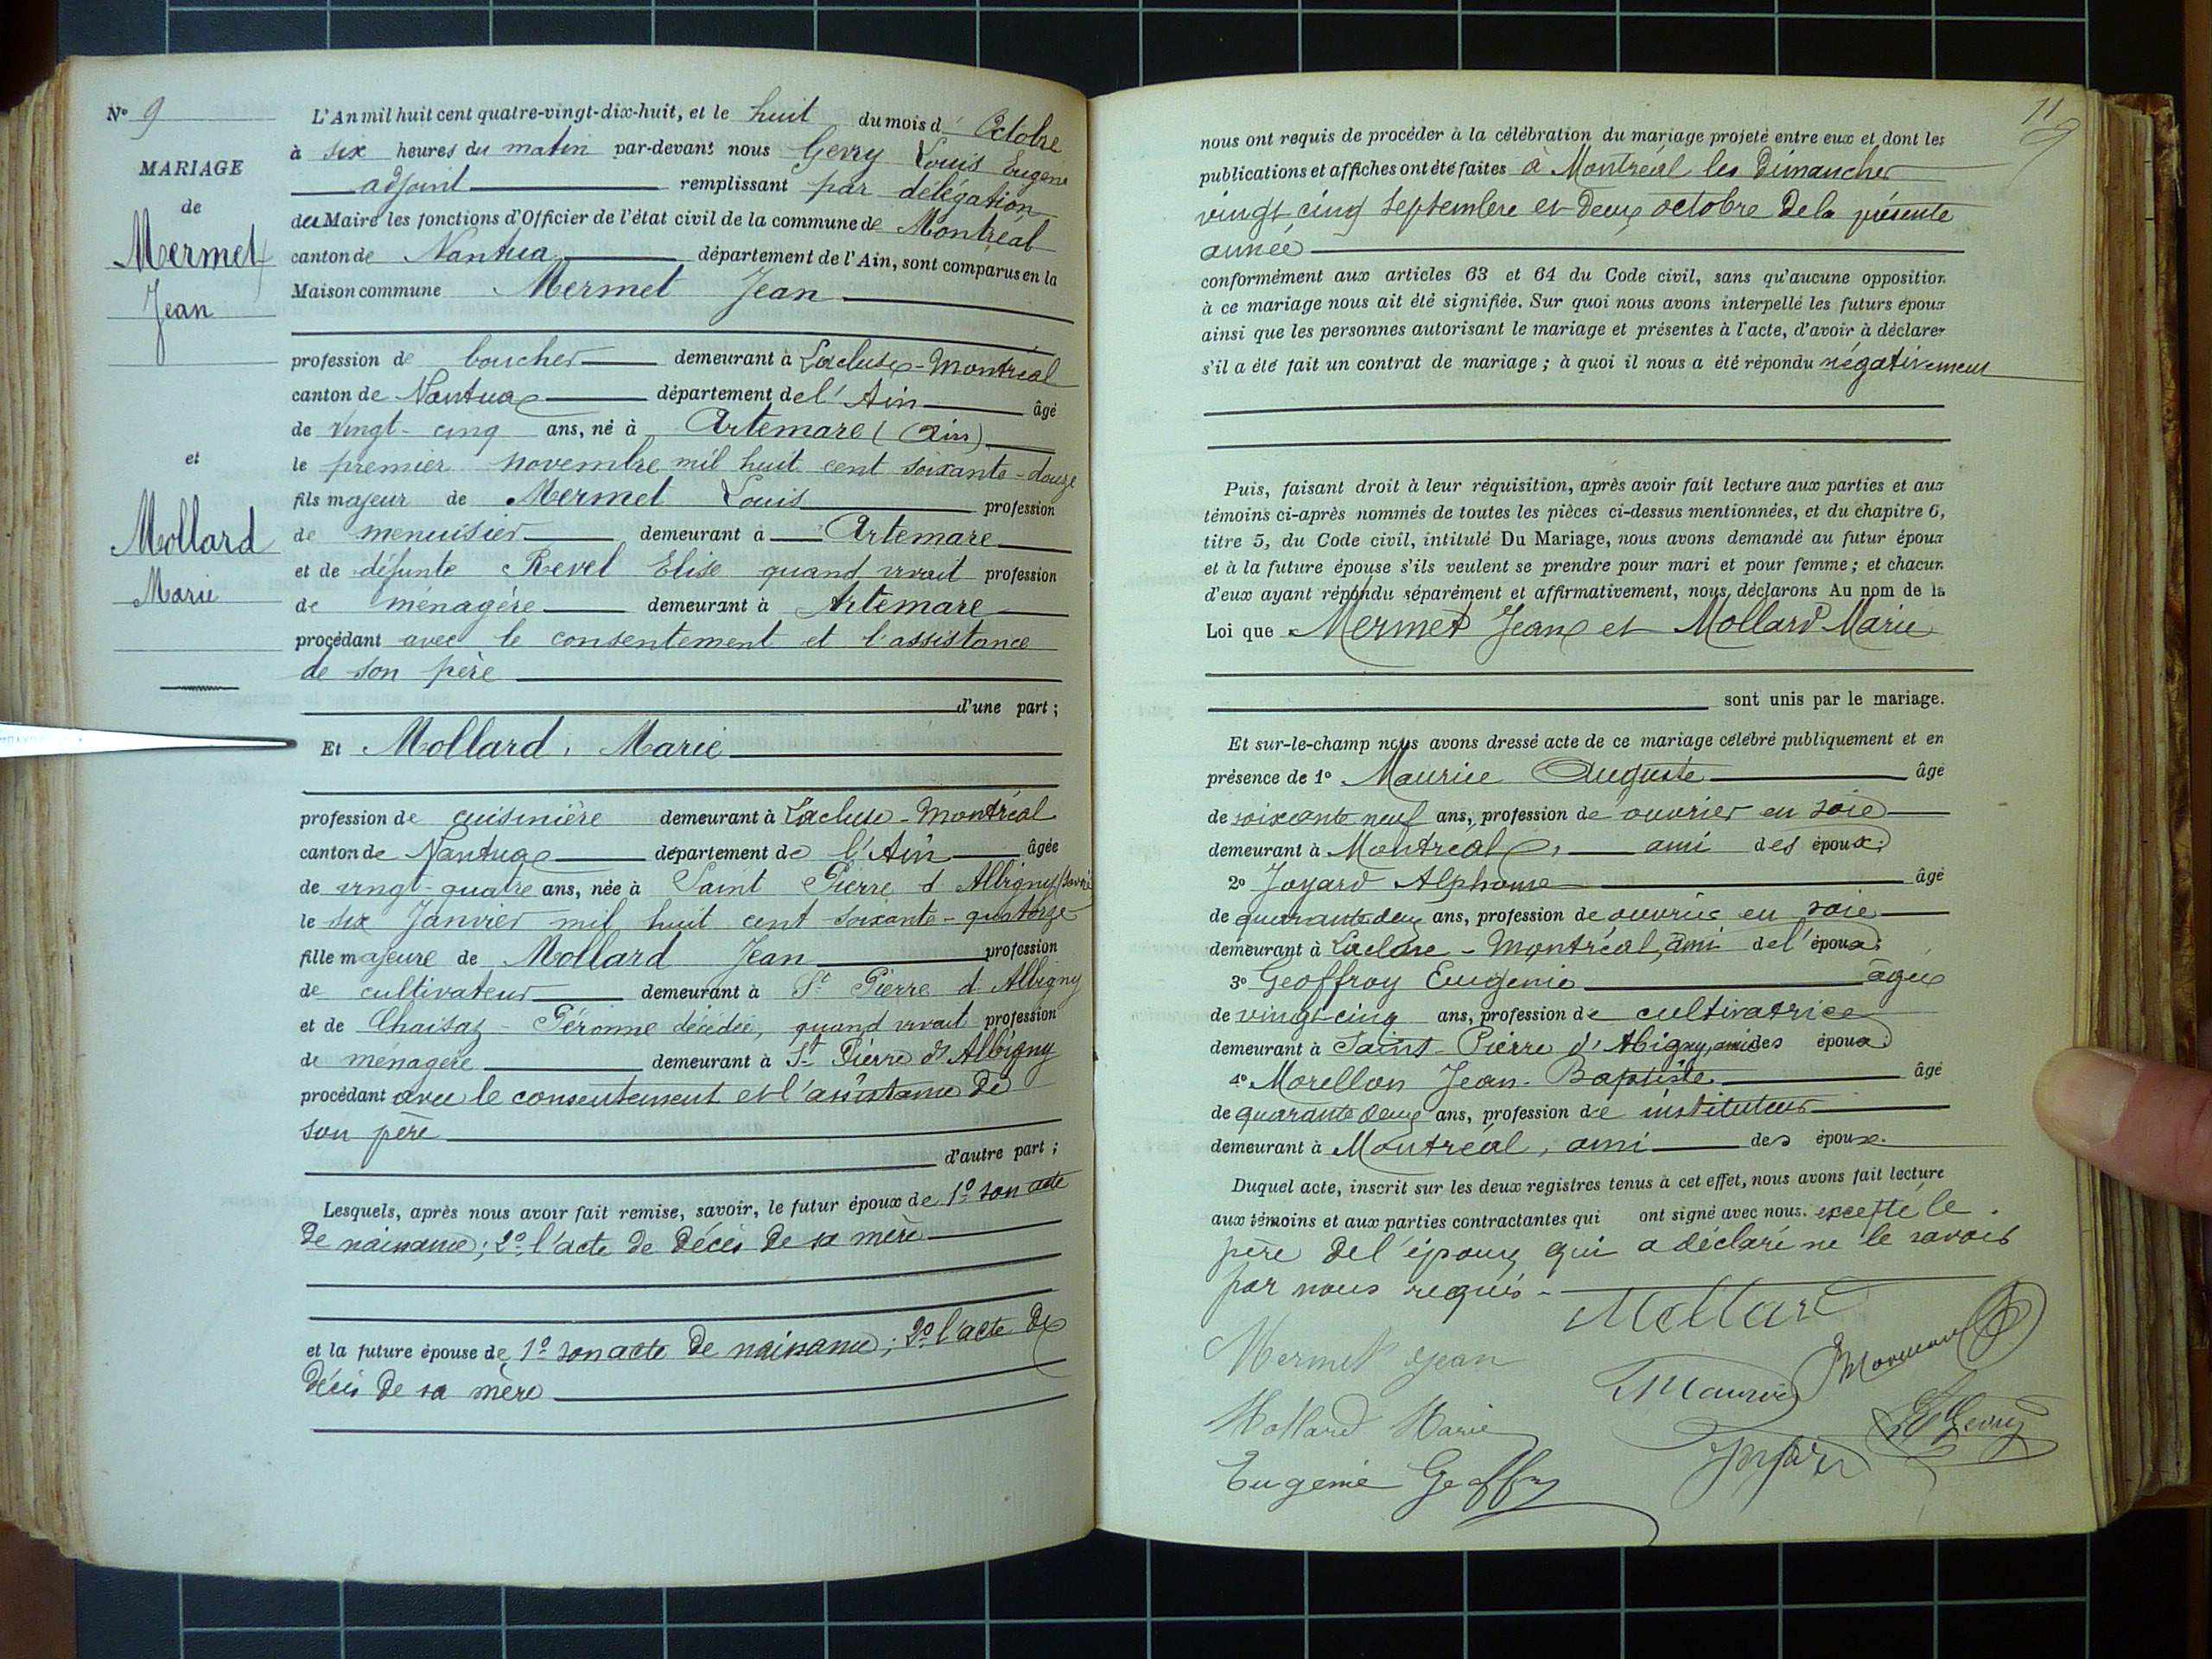 N° 9
MARIAGE
de
Mermet
Jean
et
Mollard
Marie
L'An mil huit cent quatre-vingt-dix-huit, et le huit du mois d' Octobre
à six heures du matin par-devant nous Gevry Louis Eugene
adjoint remplissant par délégation
du Maire les fonctions d'Officier de l'état civil de la commune de Montreal
canton de Nantua département de l'Ain, sont comparus en la
Maison commune Mermet Jean
profession de boucher demeurant à Lacluse-Montréal
canton de Nantua département de l'Ain âgé
de vingt-cinq ans, né à Artemare (Ain)
le premier novembre mil huit cent soixante-douze
fils majeur de Mermet Louis profession
de menuisier demeurant à Artemare
et de défunte Revel Elise quand vivait profession
de ménagère demeurant à Artemare
procédant avec le consentement et l'assistance
de son père
d'une part ;
Et Mollard, Marie
profession de cuisinière demeurant à Lacluse-Montréal
canton de Nantua département de l'Ain âgée
de vingt-quatre ans, née à Saint Pierre d'Albigny (Savoie
le six Janvier mil huit cent soixante-quatorze
fille majeure de Mollard Jean profession
de cultivateur demeurant à St Pierre d'Albigny
et de Chaisaz - Péronne décédée, quand vivait profession
de ménagère demeurant à St Pierre d'Albigny
procédant avec le consentement et l'assistance de
son père
d'autre part ;
Lesquels, après nous avoir fait remise, savoir, le futur époux de 1° son acte
de naissance; 2° l'acte de décès de sa mère
et la future épouse de 1° son acte de naissance; 2° l'acte de
décès de sa mère
11
9
nous ont requis de procéder à la célébration du mariage projeté entre eux et dont les
publications et affiches ont été faites à Montréal les Dimanches
vingt cinq Septembre et deux octobre de la présente
année
conformément aux articles 63 et 64 du Code civil, sans qu'aucune opposition
à ce mariage nous ait été signifiée. Sur quoi nous avons interpellé les futurs époux
ainsi que les personnes autorisant le mariage et présentes à l'acte, d'avoir à déclarer
s'il a été fait un contrat de mariage ; à quoi il nous a été répondu négativement
Puis, faisant droit à leur réquisition, après avoir fait lecture aux parties et aux
témoins ci-après nommés de toutes les pièces ci-dessus mentionnées, et du chapitre 6,
titre 5, du Code civil, intitulé Du Mariage, nous avons demandé au futur époux
et à la future épouse s'ils veulent se prendre pour mari et pour femme ; et chacun
d'eux ayant répondu séparément et affirmativement, nous déclarons Au nom de la
Loi que Mermet Jean et Mollard Marie
sont unis par le mariage.
Et sur-le-champ nous avons dressé acte de ce mariage célébré publiquement et en
présence de 1° Maurice Auguste âgé
de soixante neuf ans, profession de ouvrier en soie
demeurant à Montréal, ami des époux;
2° Joyard Alphonse âgé
de quarante deux ans, profession de ouvrier en soie
demeurant à Lacluse-Montréal, ami de l'époux;
3° Geoffroy Eugenie âgée
de vingt-cinq ans, profession de cultivatrice
demeurant à Saint-Pierre d'Abigny, amie des époux;
4° Morellon Jean-Baptiste âgé
de quarante deux ans, profession de instituteur
demeurant à Montréal, ami des époux.
Duquel acte, inscrit sur les deux registres tenus à cet effet, nous avons fait lecture
aux témoins et aux parties contractantes qui ont signé avec nous. excepté le
père de l'époux qui a déclaré ne le savoir
par nous requis -
Mollard
Mermet Jean
Maurice
Mollard Marie
Gevry
Joyard
Eugenie Geoffroy